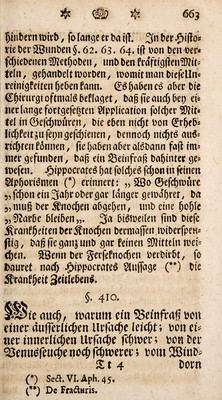 663
hindern wird, so lange er da ist. In der Histo-
rie der Wunden §. 62. 63. 64. ist von den ver-
schiedenen Methoden, und den kräftigsten Mit-
teln, gehandelt worden, womit man diese Un-
reinigkeiten heben kann. Es haben es aber die
Chirurgi oftmals beklaget, daß sie auch bey ei-
ner lange fortgesetzten Application solcher Mit-
tel in Geschwüren, die eben nicht von Erheb-
lichkeit zu seyn geschienen, dennoch nichts aus-
richten können, sie haben aber alsdann fast im-
mer gefunden, daß ein Beinfraß dahinter ge-
wesen. Hippocrates hat solches schon in seinen
Aphorismen (*) erinnert: „Wo Geschwüre
„schon ein Jahr oder gar länger gewähret, da
„muß der Knochen abgehen, und eine hohle
„Narbe bleiben„. Ja bisweilen sind diese
Krankheiten der Knochen dermassen widerspen-
stig, daß sie ganz und gar keinen Mitteln wei-
chen. Wenn der Fersenknochen verdirbt, so
dauret nach Hippocrates Aussage (**) die
Krankheit Zeitlebens.
§. 410.
Wie auch, warum ein Beinfraß von
einer äusserlichen Ursache leicht; von ei-
ner innerlichen Ursache schwer; von der
Venusseuche noch schwerer; vom Wind-
Tt 4 dorn
(*) Sect. VI. Aph. 45.
(**) De Fracturis.